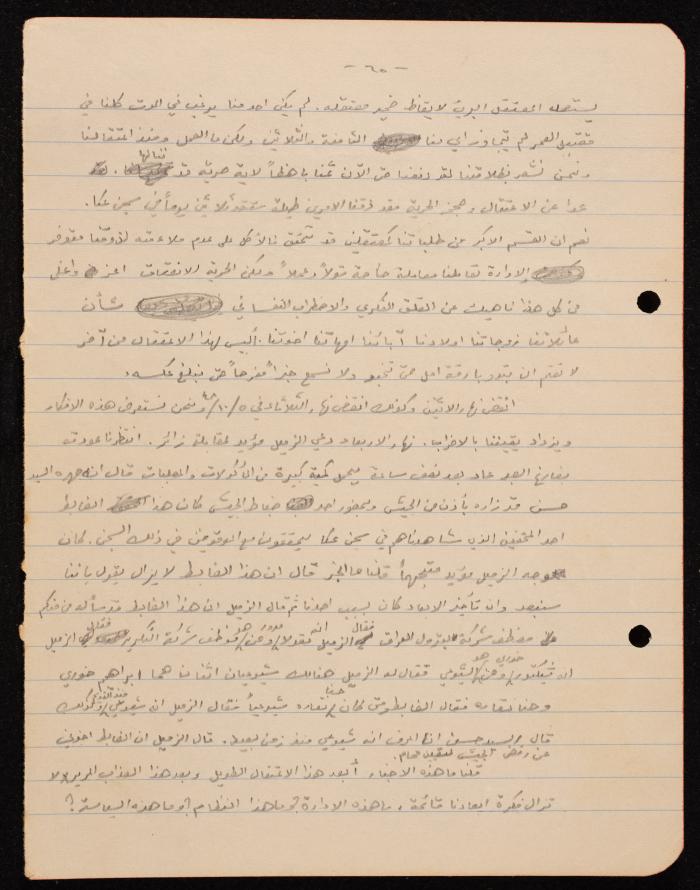 - ٦٥ -
يستعمل المعتقل البريء لايقاظ ضمير معتقله. لم يكن احد منا يرغب في الموت كلنا في
مقتبل العمر لم يتجاوز اي منا الثامنة والثلاثين ولكن ما العمل ومنذ اعتقالنا
ونحن نشعر بظلامتنا لقد دفعنا حتى الآن ثمنا باهظاً لاية حرية قد ننالها.
عدا عن الاعتقال وحجز الحرية فقد ذقنا الامرين طيلة ثلاثين يوماً في سجن عكا.
نعم ان القسم الاكبر من طلباتنا كمعتقلين قد تحقق فالأكل على عدم ملاءمته لذوقنا متوفر
والادارة تعاملنا معاملة حسنة قولاً وعملاً ولكن الحرية والانعتاق اعز واغلى
من كل هذا ناهيك عن القلق الفكري والاضطراب النفساني شأن
عائلاتنا زوجاتنا اولادنا آبائنا امهاتنا اخوتنا. أليس لهذا الاعتقال من آخر
لا تفتر ان تبدو بارقة امل حتى تخبو ولا نسمع خبراً مفرحاً حتى نبلغ عكسه.
انقضى نهار الاثنين وكذلك انقضى نهار الثلاثاء في ٥/١٠/٤٨ ونحن نستعرض هذه الافكار
ويزداد يقيننا بالاضراب. نهار الاربعاء دعي الزميل مؤيد لمقابلة زائر. انتظرنا عودته
بفارغ الصبر عاد بعد نصف ساعة يحمل كمية كبيرة من المأكولات والمعلبات قال ان صهره السيد
حسن قد زاره بأذن من الجيش وبحضور احد ضباط الجيش كان هذا الضابط
احد المحققين الذين شاهدناهم في سجن عكا يحققون مع الموقوفين في ذلك السجن. كان
وجه الزميل مؤيد متجهماً قلنا ما الخبر قال ان هذا الضابط لا يزال يقول باننا
سنبعد وان تأخير الابعاد كان بسبب احدنا ثم قال الزميل ان هذا الضابط قد سأله من منكم
موظف شركة بترول العراق فقال الزميل انه موظف شركة التكرير فقال الزميل
انه فيكتور خوري هو الشيوعي فقال له الزميل هنالك شيوعيان اثنان هما ابراهيم خوري
وحنا نقاره فقال الضابط ومتى كان حنا نقاره شيوعياً فقال الزميل انه شيوعي منذ القديم وكذلك
قال السيد حسن انا اعرف انه شيوعي منذ زمن بعيد. قال الزميل ان الضابط اخبرني
عن رفض الجيش
قلنا ما هذه الاخبار أبعد هذا الاعتقال الطويل وبعد هذا العذاب المرير لا
تزال فكرة ابعادنا قائمة، ما هذه الادارة؟ وما هذا النظام؟ وما هذه السياسة؟